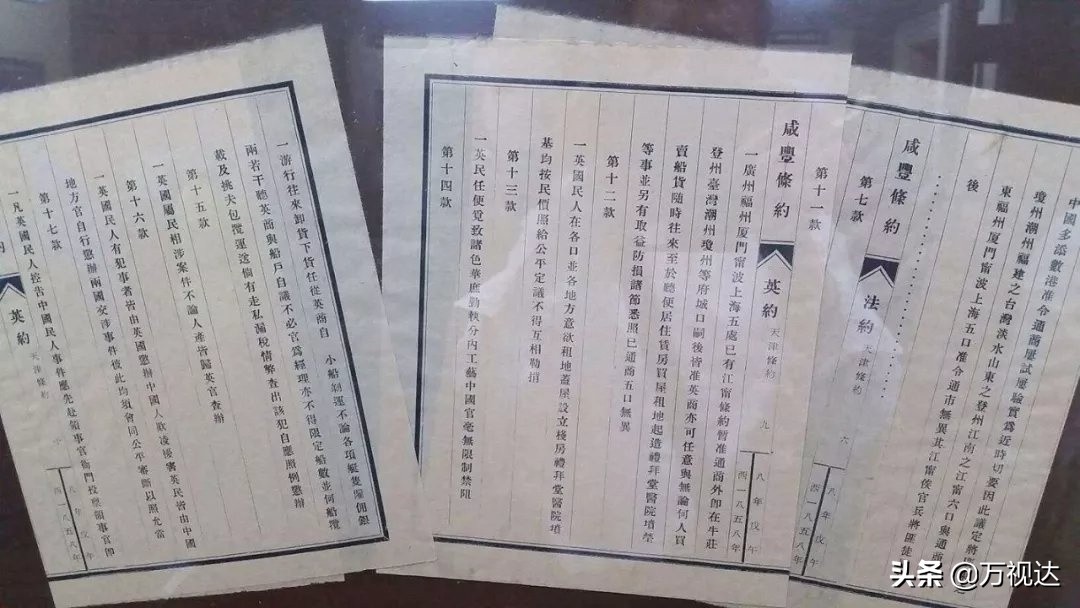 中國多訟數港准令通商屢試屢驗實爲近時切要因此議定將
瓊州潮州福建之台灣淡水山東之登州江南之江甯六口與通商
東福州厦門甯波上海五口准令通市無異其江甯俟官兵將匪徒
後
第七款
咸豐條約
法約
天津條約
六
八年戊午
西一八五八年
咸豐條約
英約
天津條約
九
八年戊午
西一八五八年
第十一款
一廣州福州厦門甯波上海五處已有江甯條約暫准通商外即在牛莊
登州臺灣潮州瓊州等府城口嗣後皆准英商亦可任意與無論何人買
賣船貨隨時往來至於聽便居住賃房買屋租地起造禮拜堂醫院墳塋
等事並另有取益防損諸節悉照已通商五口無異
第十二款
一英國民人在各口並各地方意欲租地蓋屋設立棧房禮拜堂醫院墳
基均按民價照給公平定議不得互相勒掯
第十三款
一英民任便覓致諸色華庶勷執分內工藝中國官毫無限制禁阻
第十四款
一游行往來卸貨下貨任從英商自 小船剝運不論各項艇隻雇佣銀
兩若干聽英商與船戶自議不必官爲經理亦不得限定船數並何船攬
載及挑夫包攬運送倘有走私漏稅情弊查出該犯自應照例懲辦
第十五款
一英國屬民相涉案件不論人產皆歸英官查辦
第十六款
一英國民人有犯事者皆由英國懲辦中國人欺凌擾害英民皆由中國
地方官自行懲辦兩國交涉事件彼此均須會同公平審斷以照允當
第十七款
一凡英國民人控告中國民人事件應先赴領事官衙門投禀領事官即
英約
天津條約
八年戊午
西一八五八年
头条 @万视达